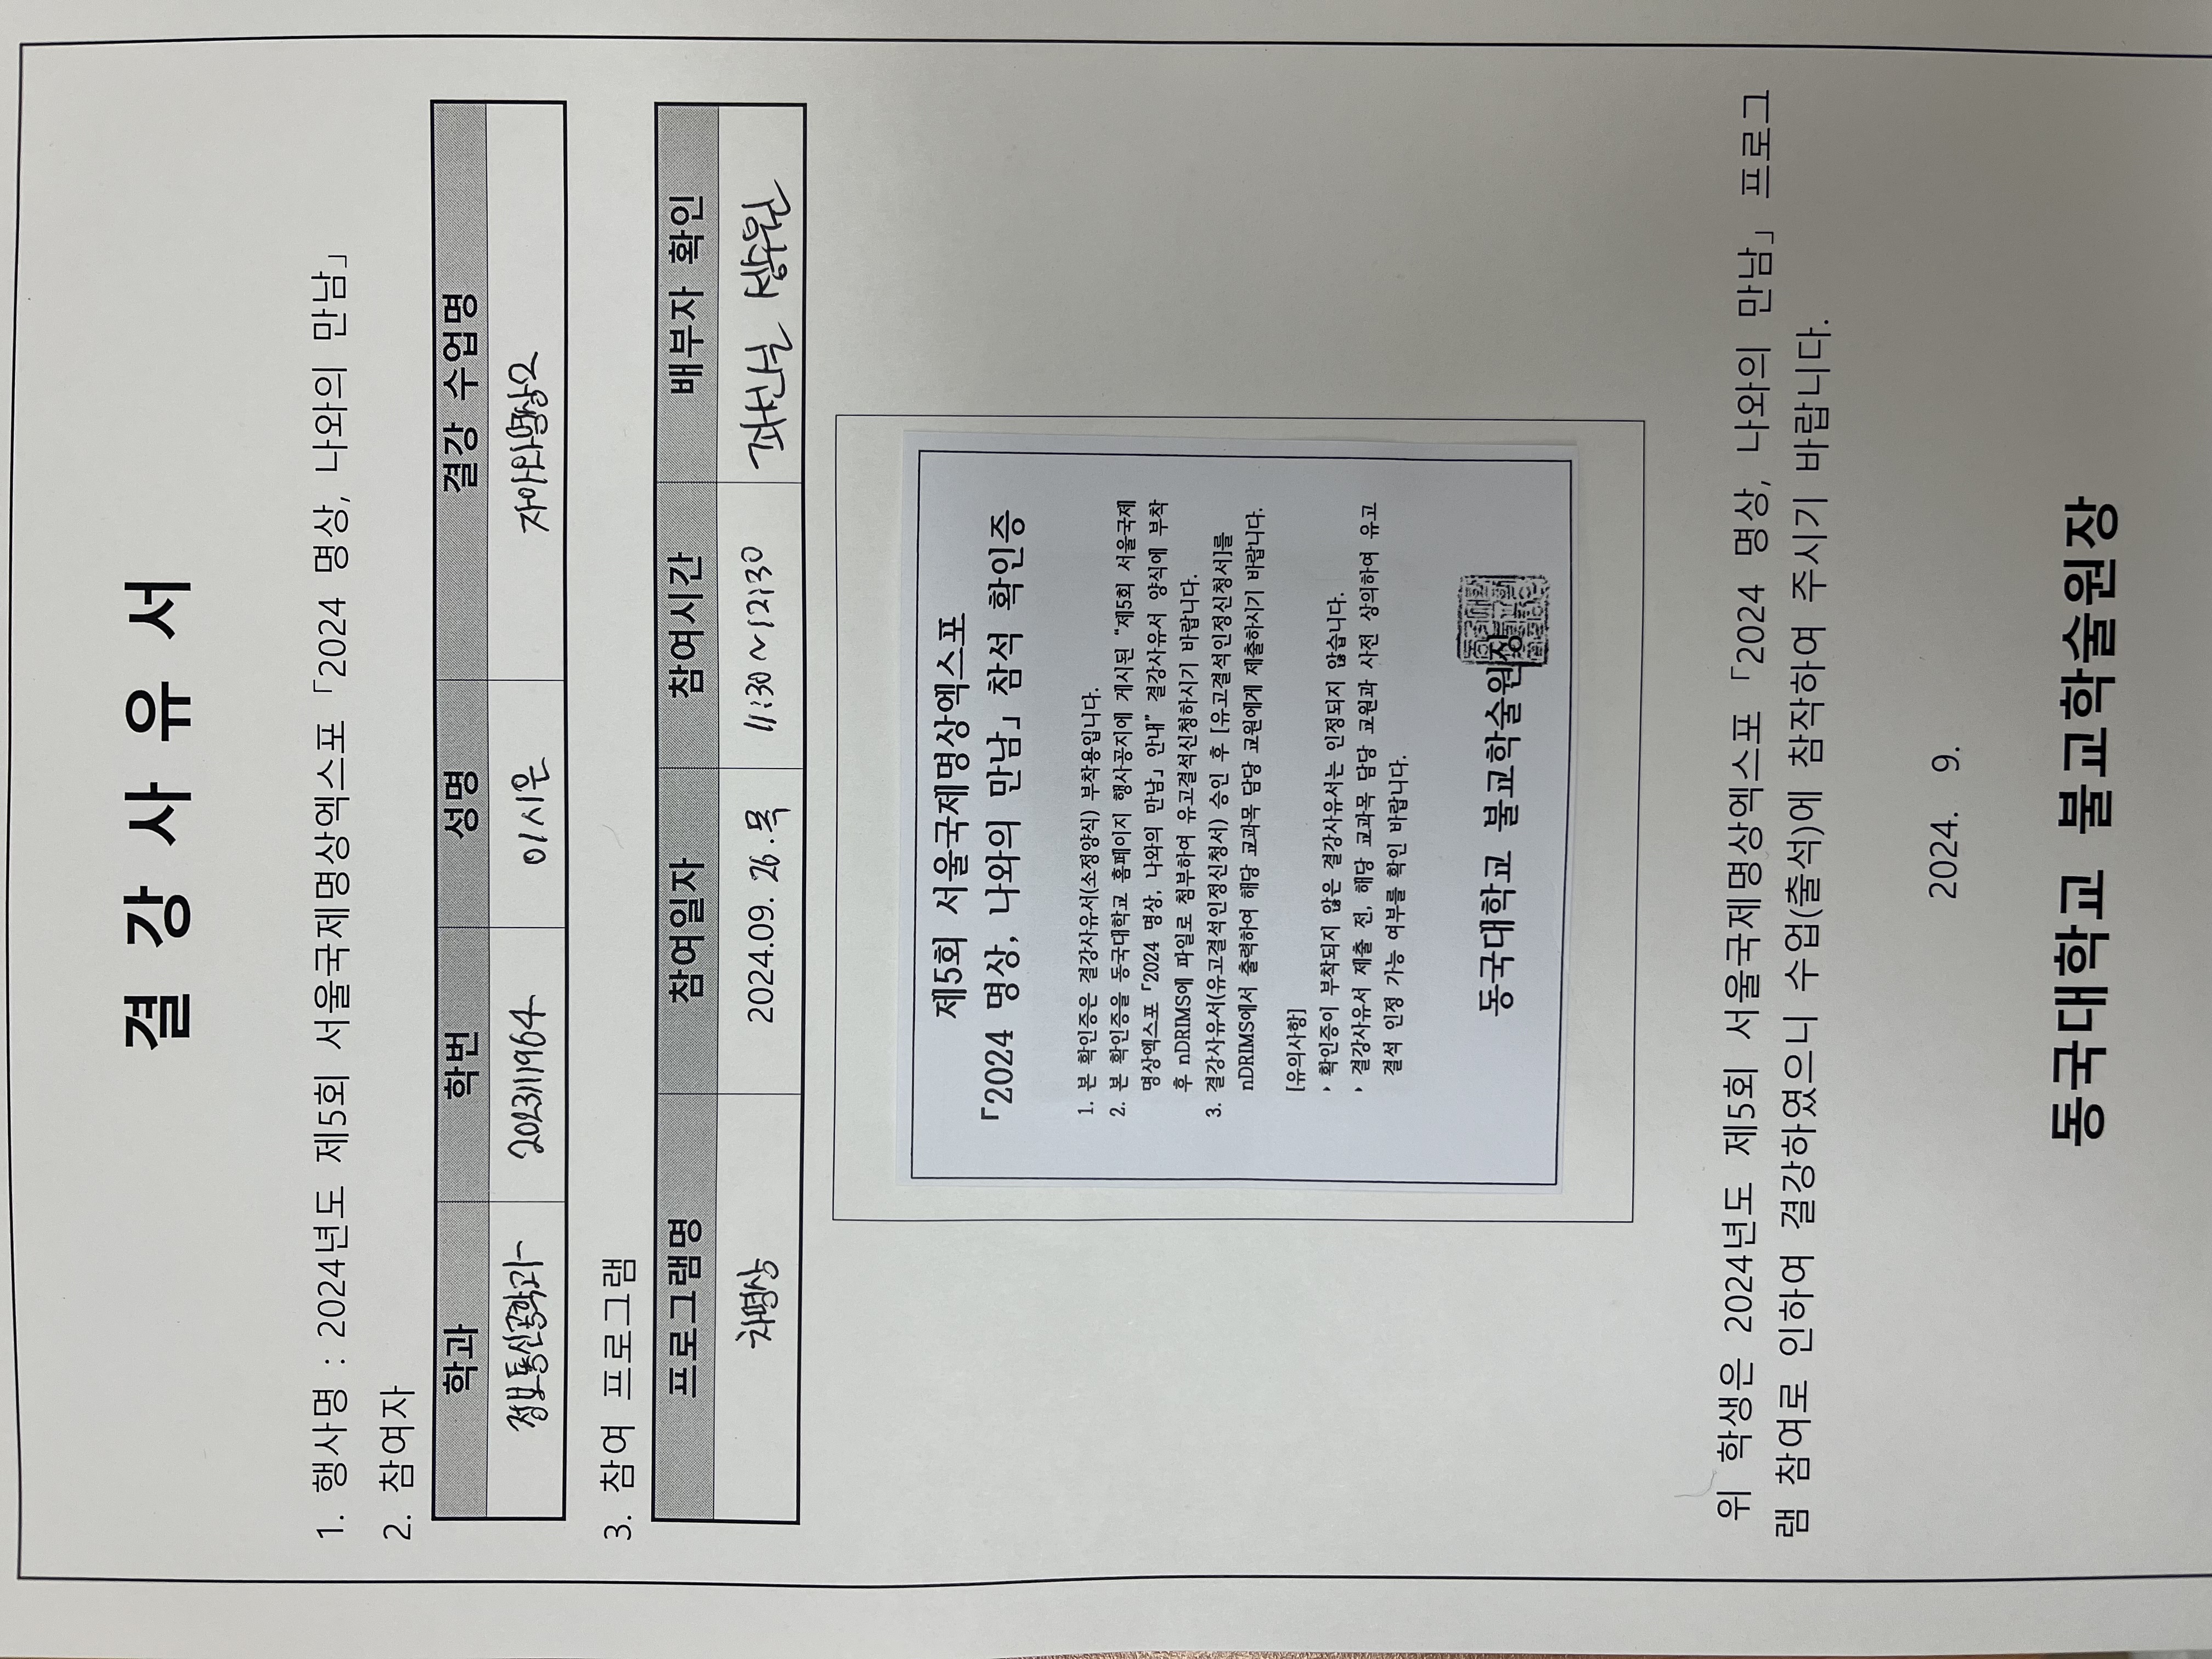 결강사유서
1. 행사명 : 2024년도 제5회 서울국제명상엑스포「2024 명상, 나와의 만남」
2. 참여자
학과 학번 성명 결강 수업명
정보통신공학과 2023111964 이시은 자아와명상2
3. 참여 프로그램
프로그램명 참여일자 참여시간 배부자 확인
차명상 2024.09. 26.목 11:30~12:30 좌선실
제5회 서울국제명상엑스포
「2024 명상, 나와의 만남」 참석 확인증
1. 본 확인증은 결강사유서(소정양식) 부착용입니다.
2. 본 확인증을 동국대학교 홈페이지 행사공지에 게시된 “제5회 서울국제
명상엑스포「2024 명상, 나와의 만남」안내” 결강사유서 양식에 부착
후 nDRIMS에 파일로 첨부하여 유고결석신청하시기 바랍니다.
3. 결강사유서(유고결석인정신청서) 승인 후 [유고결석인정신청서]를
nDRIMS에서 출력하여 해당 교과목 담당 교원에게 제출하시기 바랍니다.
[유의사항]
‣ 확인증이 부착되지 않은 결강사유서는 인정되지 않습니다.
‣ 결강사유서 제출 전, 해당 교과목 담당 교원과 사전 상의하여 유고
결석 인정 가능 여부를 확인 바랍니다.
동국대학교 불교학술원장
위 학생은 2024년도 제5회 서울국제명상엑스포「2024 명상, 나와의 만남」 프로그
램 참여로 인하여 결강하였으니 수업(출석)에 참작하여 주시기 바랍니다.
2024. 9.
동국대학교 불교학술원장